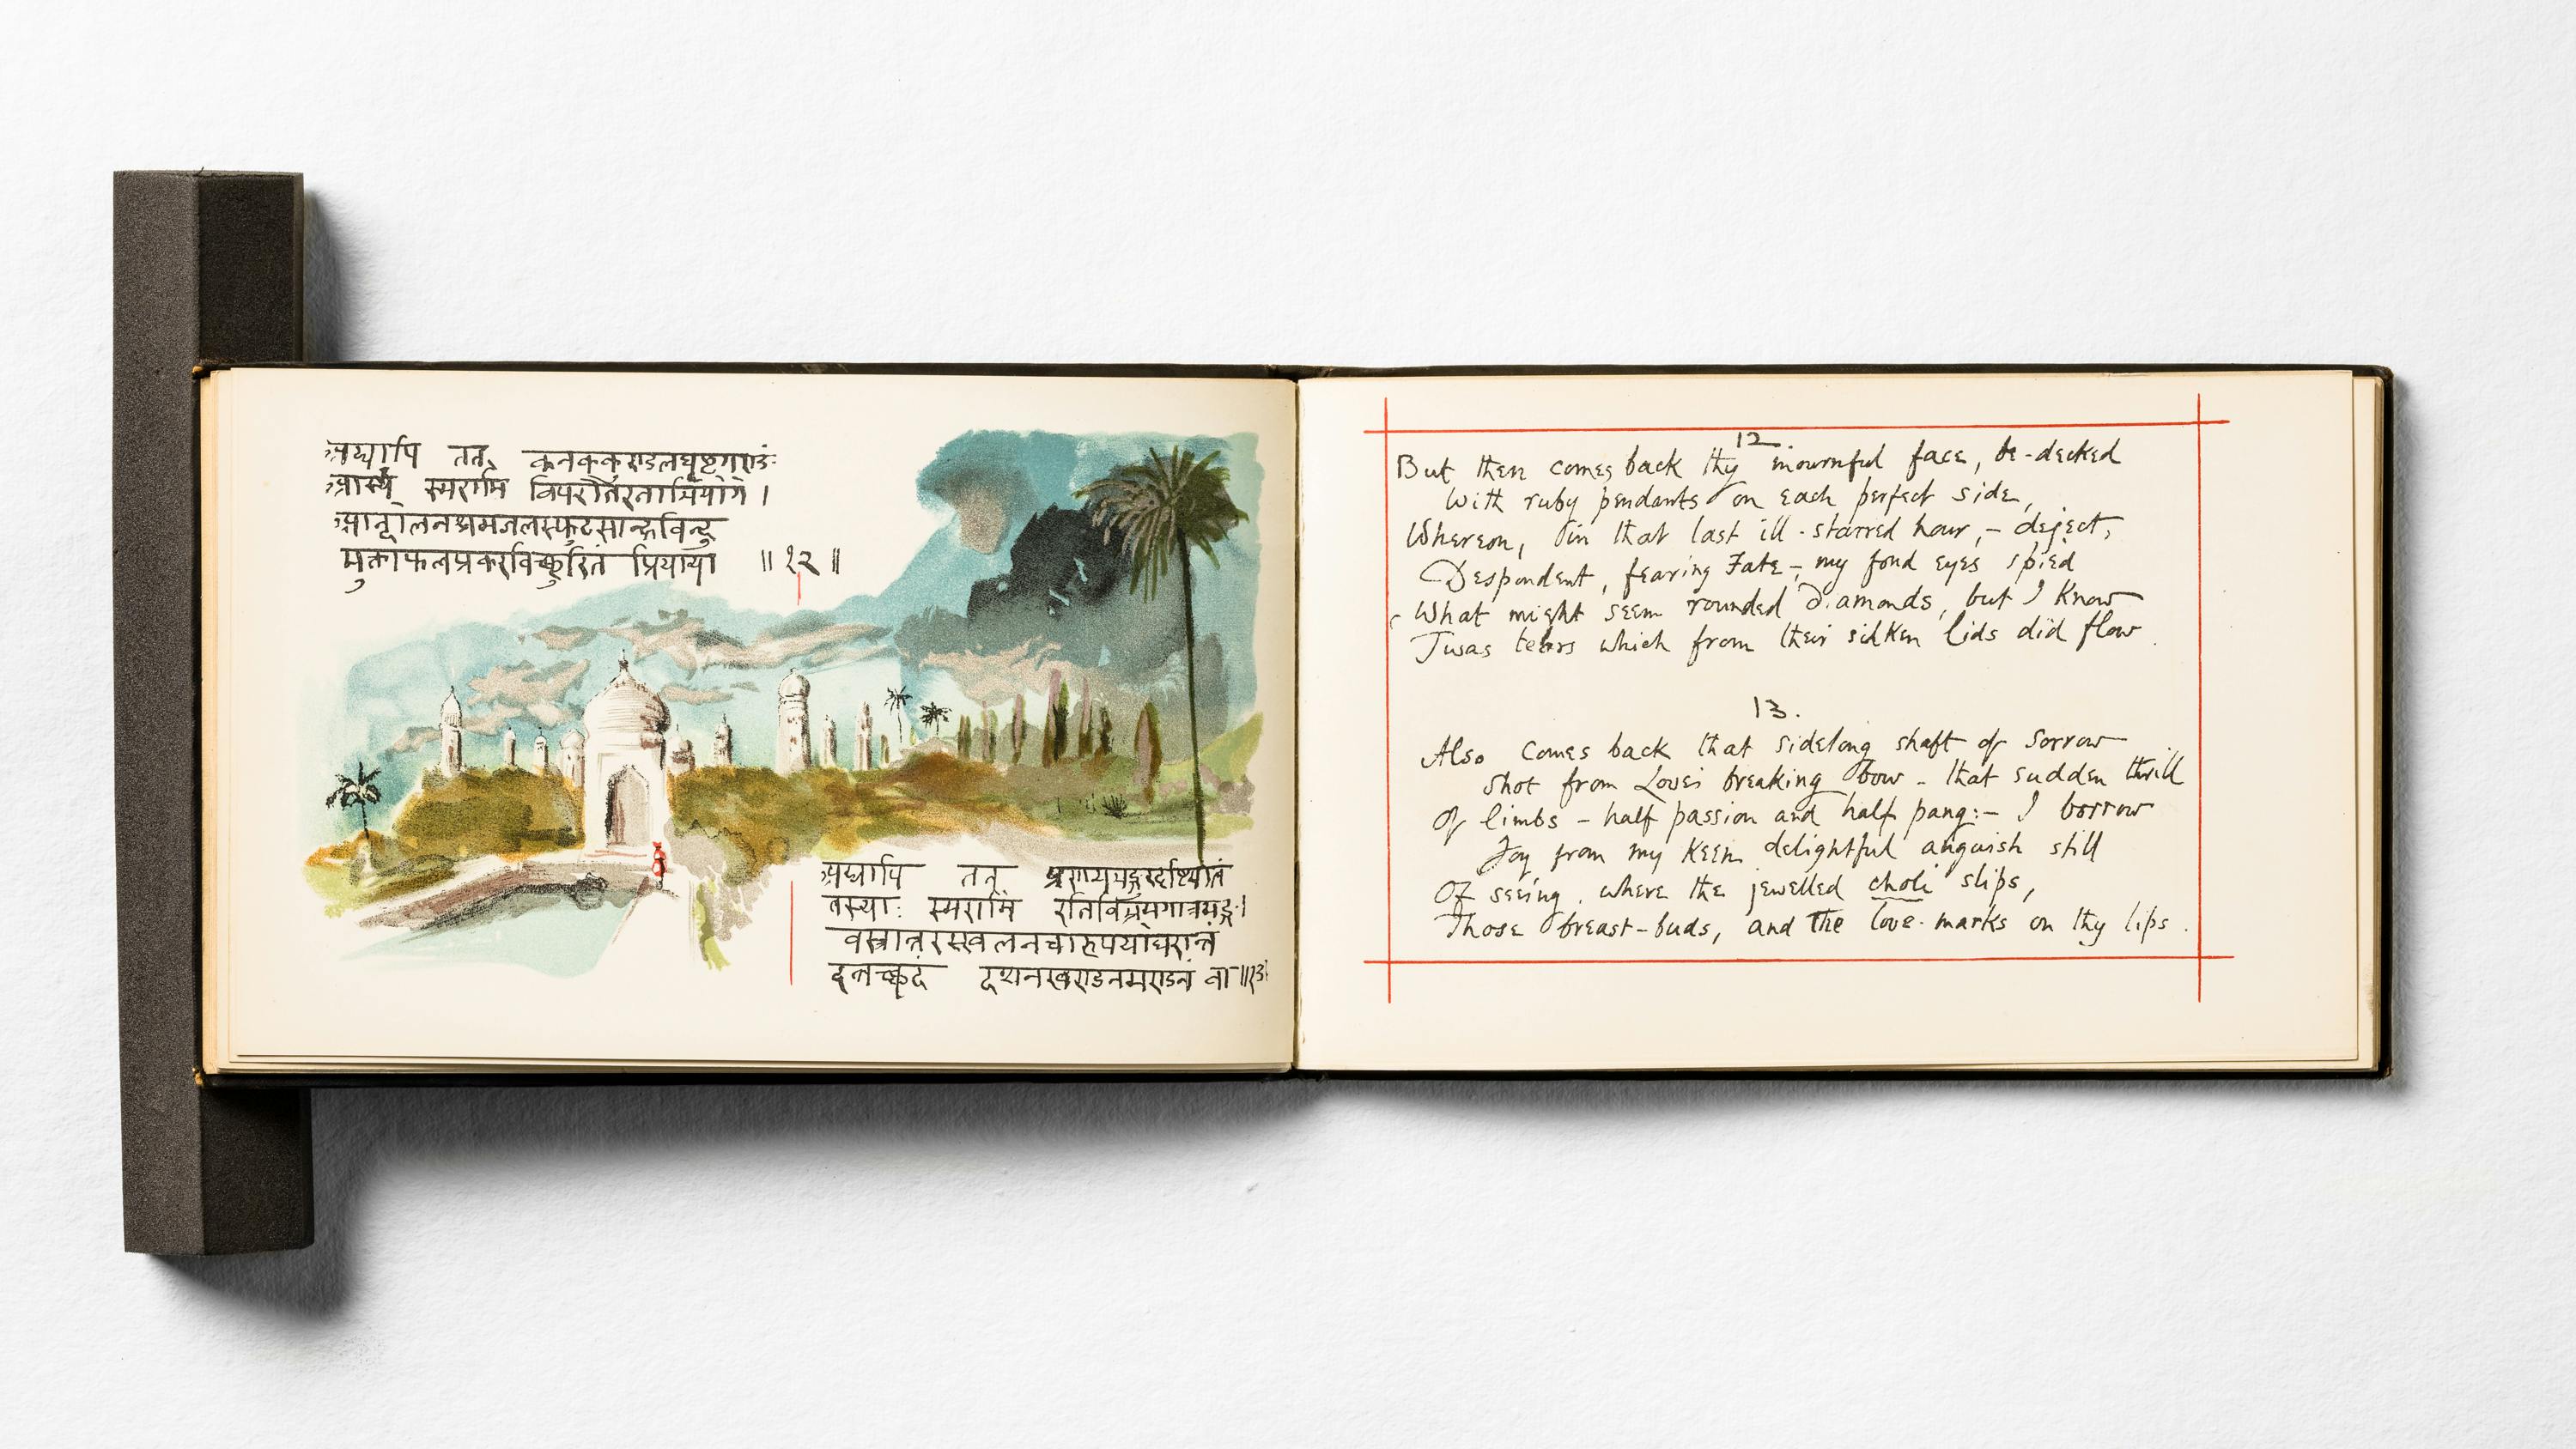 अद्यापि तत् कनककुण्डलघृष्टगण्डं
आस्यं स्मरामि विपरीतरताभियोगे ।
आन्दोलनश्रमजलस्फुटसान्द्रविन्दु
मुक्ताफलप्रकरविच्छुरितं प्रियाया ॥ १२ ॥
अद्यापि तत् प्रणय
तस्याः स्मरामि रतिविभ्रमगात्रभङ्गः ।
वस्त्राञ्चलस्खलनचारुपयोधरान्तं
दन्तच्छदं दशनखण्डनमण्डनं वा ॥१३॥
12.
But then comes back thy mournful face, be-decked
With ruby pendants on each perfect side,
Whereon, in that last ill-starred hour, – deject,
Despondent, fearing Fate – my fond eyes spied
What might seem rounded diamonds, but I Know
Twas tears which from their silken lids did flow.
13.
Also comes back that sidelong shaft of Sorrow
Shot from Loves breaking bow – that sudden thrill
Of limbs – half passion and half pang:– I borrow
Joy from my Keen delightful anguish still
Of seeing, where the jewelled choli slips,
Those breast-buds, and the love-marks on thy lips.